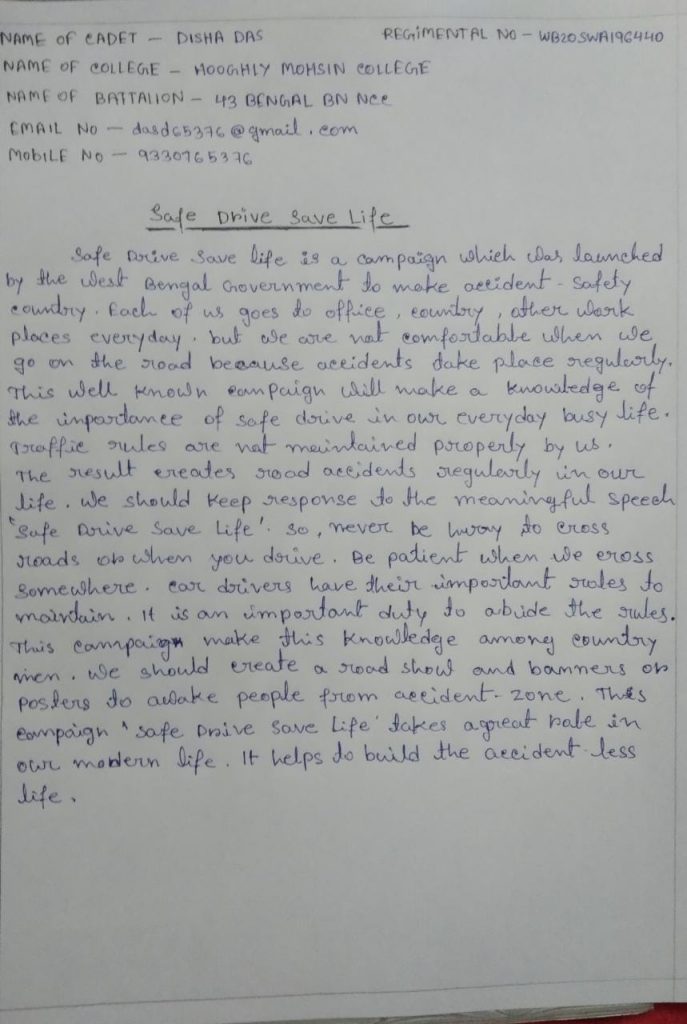 NAME OF CADET – DISHA DAS REGIMENTAL NO – WB20SWA196440
NAME OF COLLEGE – HOOGHLY MOHSIN COLLEGE
NAME OF BATTALION – 43 BENGAL BN NCC
EMAIL NO – dasd65376@gmail.com
MOBILE NO – 9330765376
Safe Drive Save Life
Safe Drive Save life is a campaign which was launched
by the West Bengal Government to make accident-safety
country. Each of us goes to office, country, other work
places everyday. but we are not comfortable when we
go on the road because accidents take place regularly.
This well known campaign will make a knowledge of
the inportance of safe drive in our everyday busy life.
Traffic rules are not maintained properly by us.
The result creates road accidents regularly in our
life. We should keep response to the meaningful speech
'Safe Drive Save Life'. So, never be hurry to cross
roads or when you drive. Be patient when we cross
somewhere. car drivers have their important roles to
maintain. It is an important duty to abide the rules.
This campaign make this knowledge among country
men. We should create a road show and banners or
posters to awake people from accident-zone. This
campaign 'Safe Drive Save Life' takes a great role in
our modern life. It helps to build the accident-less
life.